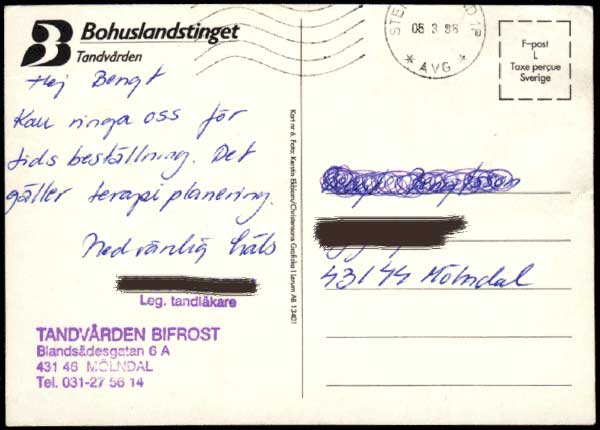 Bohuslandstinget
Tandvården
Hej Bengt
Kan ringa oss för
tids beställning. Det
gäller terapi planering.
Med vänlig häls
Leg. tandläkare
TANDVÅRDEN BIFROST
Blandsädesgatan 6 A
431 46 MÖLNDAL
Tel. 031-27 56 14
Kort nr 6. Foto: Kerstin Ekblom/Christensons Grafiska i Lerum AB 13401
05 3 98
* AVG *
F-post
L
Taxe perçue
Sverige
431 44 Mölndal